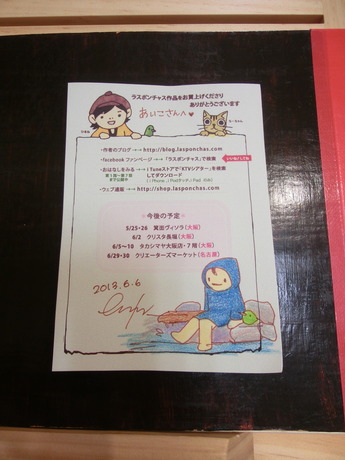 ラスポンチャス作品をお買上げくださり
ありがとうございます
あいこさんへ♥
・作者のブログ→→http://blog.lasponchas.com
・facebook ファンページ→→「ラスポンチャス」で検索
・おはなしをみる→→iTuneストアで「KTVシアター」を検索
してダウンロード
・ウェブ通販→→http://shop.lasponchas.com
今後の予定
5/25・26 箕面ヴィソラ(大阪)
6/2 クリスタ長堀(大阪)
6/5〜10 タカシマヤ大阪店・7階(大阪)
6/29・30 クリエーターズマーケット(名古屋)
2013.6.6